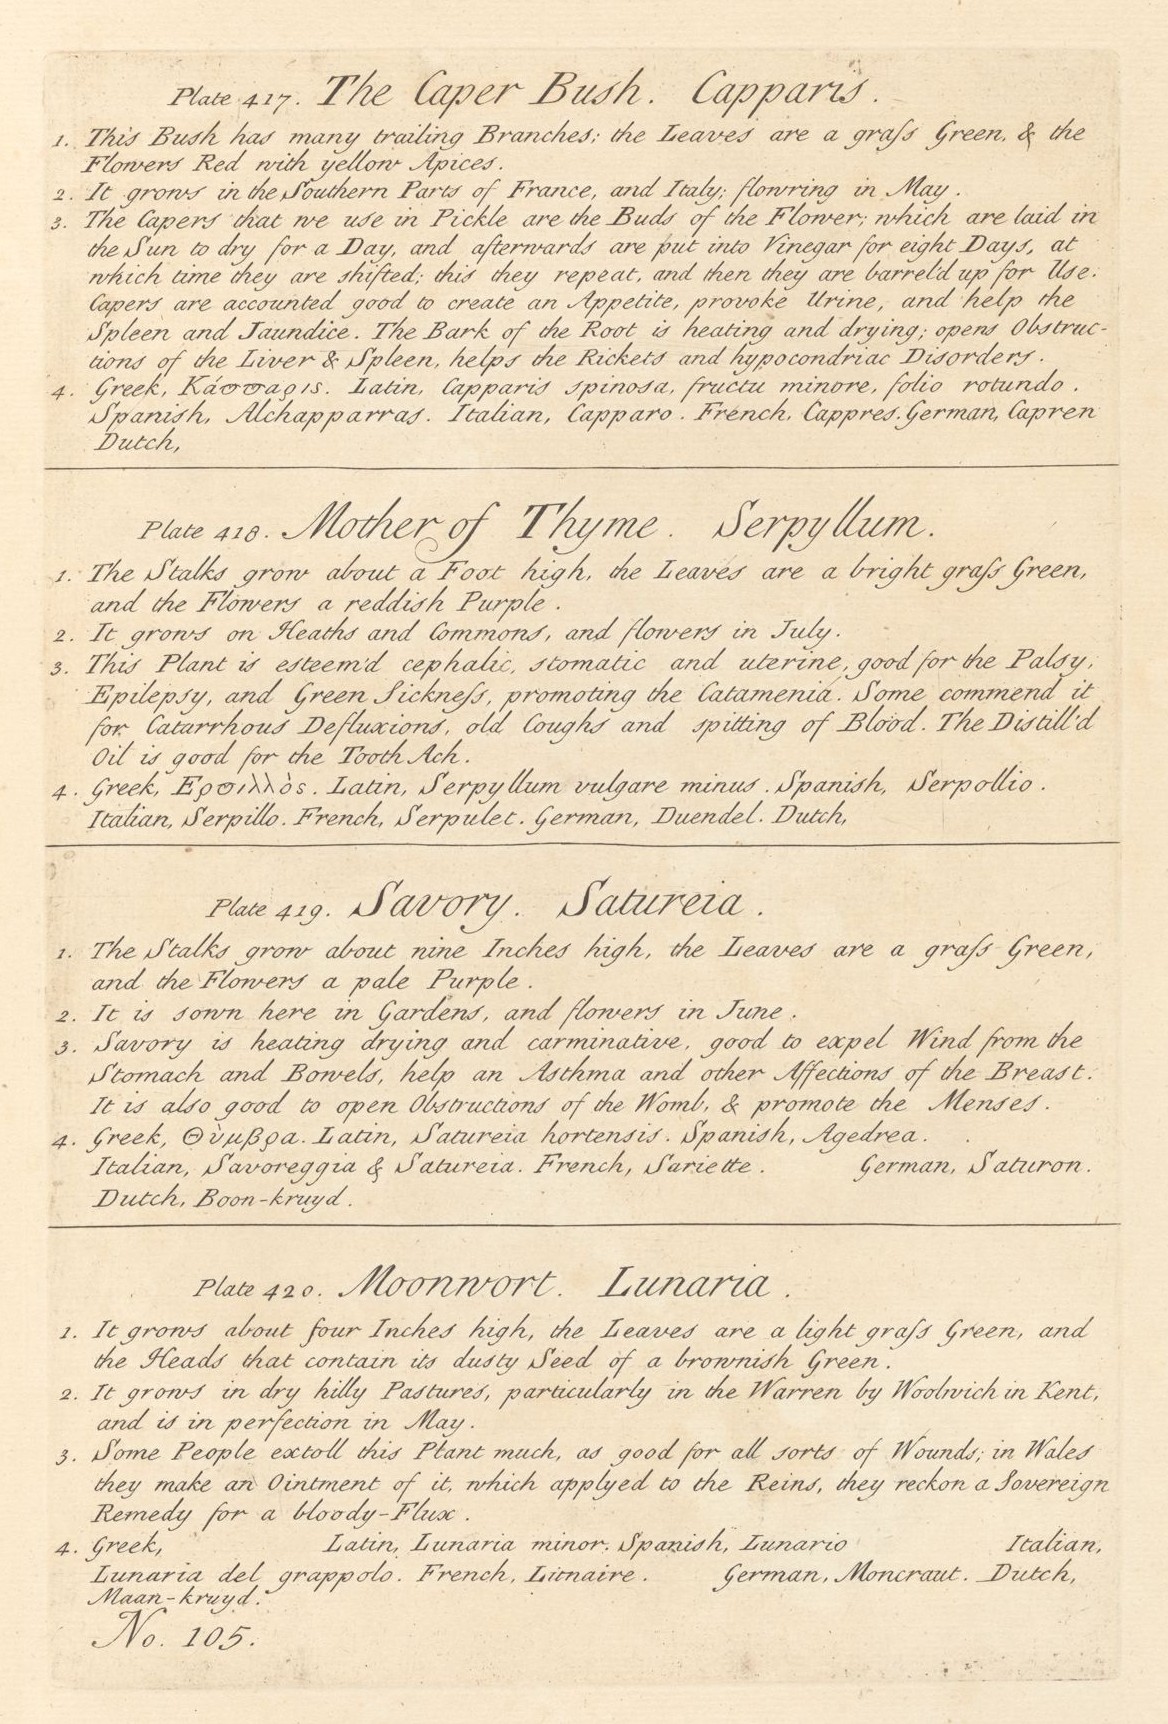 Plate 417. The Caper Bush. Capparis.
1. This Bush has many trailing Branches; the Leaves are a graſs Green, & the
Flowers Red with yellow Apices.
2. It grows in the Southern Parts of France, and Italy; flowring in May.
3. The Capers that we use in Pickle are the Buds of the Flower; which are laid in
the Sun to dry for a Day, and afterwards are put into Vinegar for eight Days, at
which time they are shifted; this they repeat, and then they are barrel'd up for Use.
Capers are accounted good to create an Appetite, provoke Urine, and help the
Spleen and Jaundice. The Bark of the Root is heating and drying; opens Obstruc-
tions of the Liver & Spleen, helps the Rickets and hypocondriac Disorders.
4. Greek, Κάϖϖαρις. Latin, Capparis spinosa, fructu minore, folio rotundo.
Spanish, Alchapparras. Italian, Capparo. French, Cappres. German, Capren
Dutch,
Plate 418. Mother of Thyme. Serpyllum.
1. The Stalks grow about a Foot high, the Leaves are a bright graſs Green,
and the Flowers a reddish Purple.
2. It grows on Heaths and Commons, and flowers in July.
3. This Plant is esteem'd cephalic, stomatic and uterine, good for the Palsy,
Epilepsy, and Green Sickneſs, promoting the Catamenia. Some commend it
for Catarrhous Defluxions, old Coughs and spitting of Blood. The Distill'd
Oil is good for the Tooth Ach.
4. Greek, Ερϖιλλὸς. Latin, Serpyllum vulgare minus. Spanish, Serpollio.
Italian, Serpillo. French, Serpulet. German, Duendel. Dutch,
Plate 419. Savory. Satureia.
1. The Stalks grow about nine Inches high, the Leaves are a graſs Green,
and the Flowers a pale Purple.
2. It is sown here in Gardens, and flowers in June.
3. Savory is heating drying and carminative, good to expel Wind from the
Stomach and Bowels, help an Asthma and other Affections of the Breast.
It is also good to open Obstructions of the Womb, & promote the Menses.
4. Greek, Θὺμβρα. Latin, Satureia hortensis. Spanish, Agedrea.
Italian, Savoreggia & Satureia. French, Sariette. German, Saturon.
Dutch, Boon-kruyd.
Plate 420. Moonwort. Lunaria.
1. It grows about four Inches high, the Leaves are a light graſs Green, and
the Heads that contain its dusty Seed of a brownish Green.
2. It grows in dry hilly Pastures, particularly in the Warren by Woolwich in Kent,
and is in perfection in May.
3. Some People extoll this Plant much, as good for all sorts of Wounds; in Wales
they make an Ointment of it, which applyed to the Reins, they reckon a Sovereign
Remedy for a bloody-Flux.
4. Greek, Latin, Lunaria minor. Spanish, Lunario Italian,
Lunaria del grappolo. French, Litnaire. German, Moncraut. Dutch,
Maan-kruyd.
No. 105.